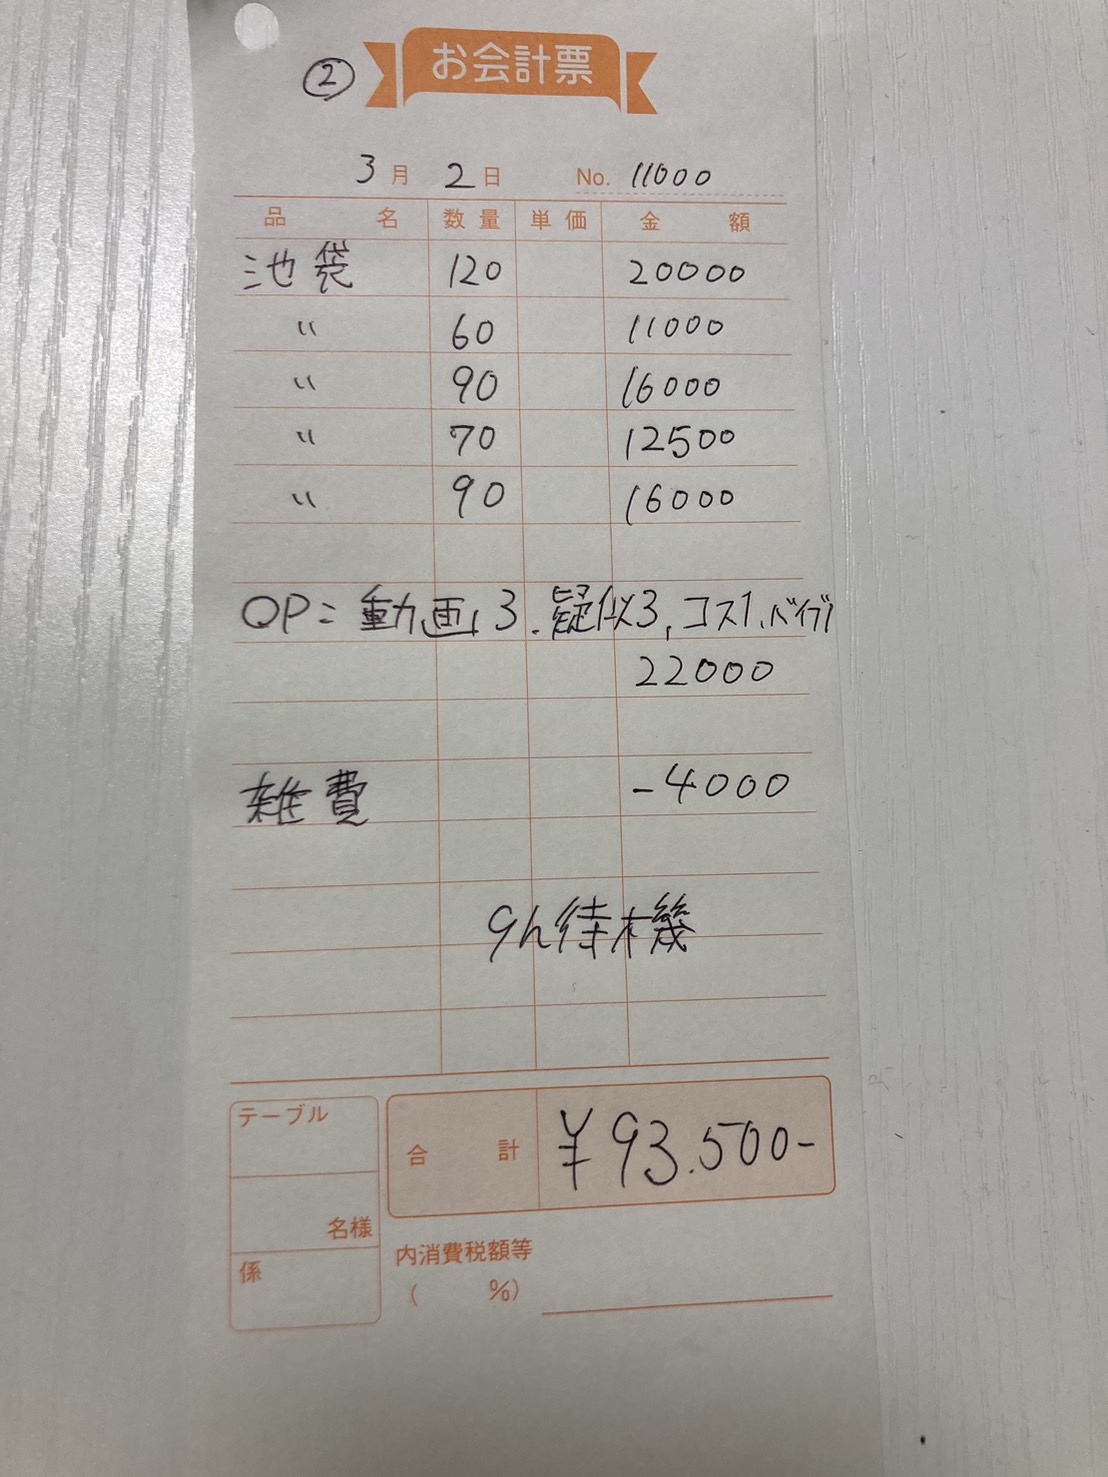 ② お会計票
3月 2日 No. 11000
品名 数量 単価 金額
池袋 120 20000
〃 60 11000
〃 90 16000
〃 70 12500
〃 90 16000
OP: 動画3.疑似3,コス1、バイブ1
22000
雑費 -4000
9h待機
テーブル
合計 ¥93.500-
名様
係
内消費税額等
( %)